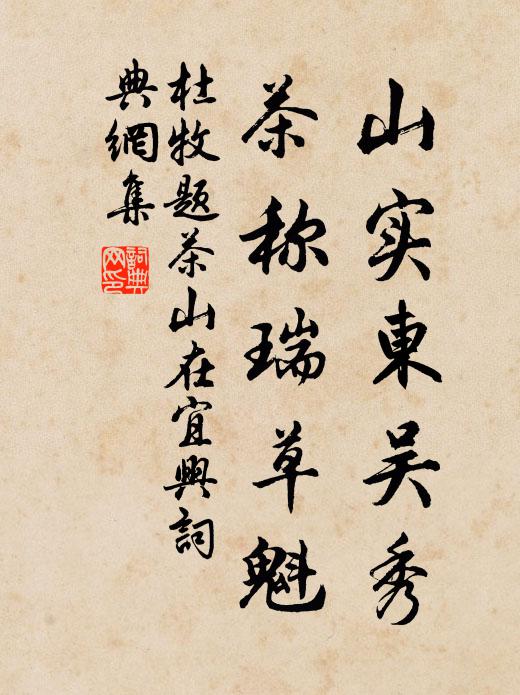 山实東吴秀
茶称瑞草魁
杜牧题茶山在宜興詞
典網集
詞典網印